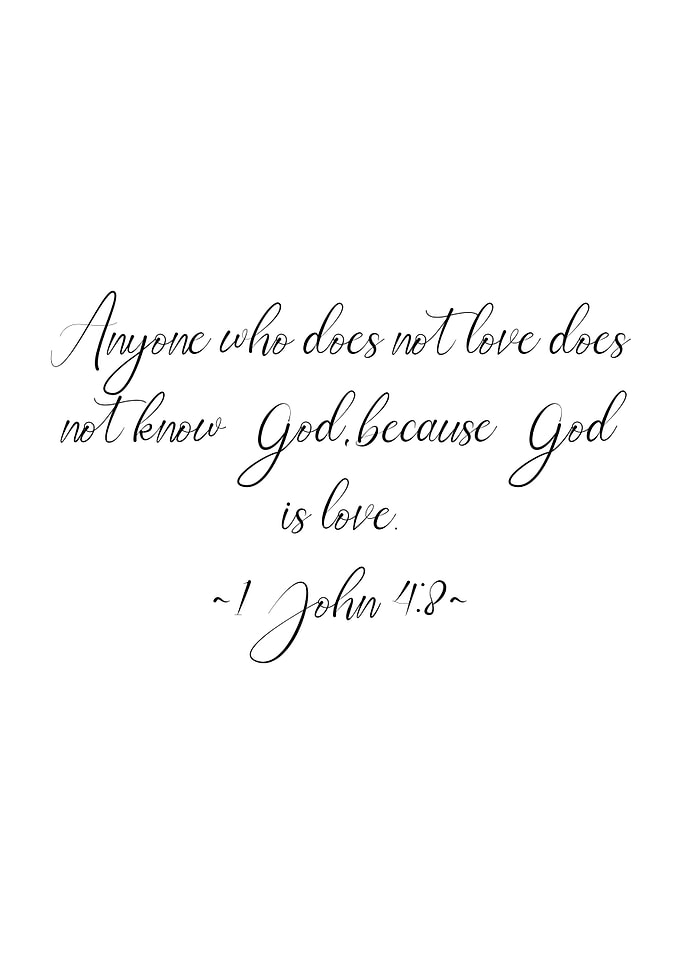 Anyone who does not love does
not know God, because God
is love.
~1 John 4:8~